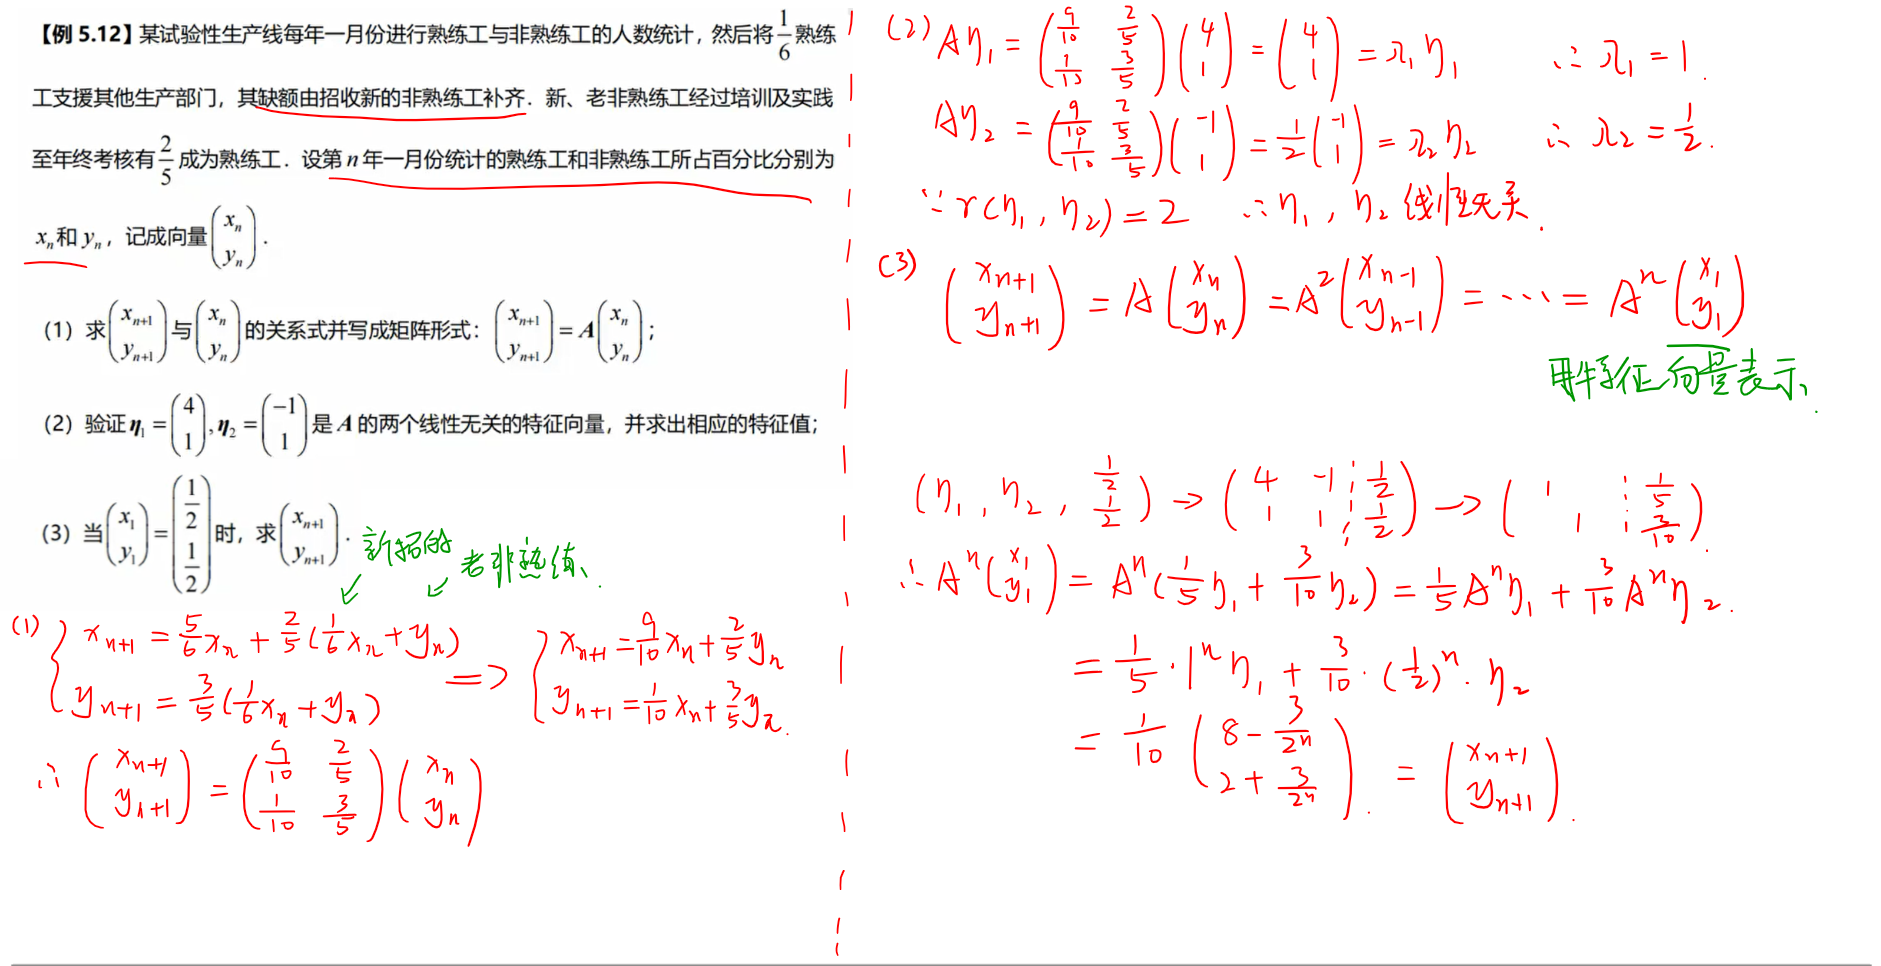 【例 5.12】某试验性生产线每年一月份进行熟练工与非熟练工的人数统计，然后将 1/6 熟练
工支援其他生产部门，其缺额由招收新的非熟练工补齐．新、老非熟练工经过培训及实践
至年终考核有 2/5 成为熟练工．设第 n 年一月份统计的熟练工和非熟练工所占百分比分别为
xₙ 和 yₙ，记成向量 (xₙ; yₙ)．
（1）求 (xₙ₊₁; yₙ₊₁) 与 (xₙ; yₙ) 的关系式并写成矩阵形式：(xₙ₊₁; yₙ₊₁) = A (xₙ; yₙ)；
（2）验证 η₁ = (4; 1), η₂ = (-1; 1) 是 A 的两个线性无关的特征向量，并求出相应的特征值；
（3）当 (x₁; y₁) = (1/2; 1/2) 时，求 (xₙ₊₁; yₙ₊₁)．
新招的 老非熟练、
(1) { xₙ₊₁ = 5/6 xₙ + 2/5 (1/6 xₙ + yₙ) => { xₙ₊₁ = 9/10 xₙ + 2/5 yₙ
yₙ₊₁ = 3/5 (1/6 xₙ + yₙ) yₙ₊₁ = 1/10 xₙ + 3/5 yₙ.
∴ (xₙ₊₁; yₙ₊₁) = (9/10 2/5; 1/10 3/5) (xₙ; yₙ)
(2) Aη₁ = (9/10 2/5; 1/10 3/5) (4; 1) = (4; 1) = λ₁η₁ ∴ λ₁ = 1.
Aη₂ = (9/10 2/5; 1/10 3/5) (-1; 1) = 1/2 (-1; 1) = λ₂η₂ ∴ λ₂ = 1/2.
∵ r(η₁, η₂) = 2 ∴ η₁, η₂ 线性无关.
(3) (xₙ₊₁; yₙ₊₁) = A (xₙ; yₙ) = A² (xₙ₋₁; yₙ₋₁) = ⋯ = Aⁿ (x₁; y₁)
用特征向量表示、
(η₁, η₂, 1/2; 1/2) → (4 -1 ⋮ 1/2; 1 1 ⋮ 1/2) → (1 ⋮ 1/5; 1 ⋮ 3/10).
∴ Aⁿ (x₁; y₁) = Aⁿ (1/5 η₁ + 3/10 η₂) = 1/5 Aⁿη₁ + 3/10 Aⁿη₂.
= 1/5 · 1ⁿ η₁ + 3/10 · (1/2)ⁿ · η₂
= 1/10 (8 - 3/2ⁿ; 2 + 3/2ⁿ). = (xₙ₊₁; yₙ₊₁).